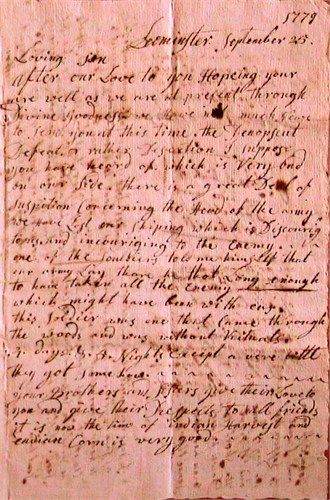 1779
Leominster September 25.
Loving son
After our Love to you Hopeing your
are well as we are at present through
Divine Goodness we have much
to send you at this time, the Penopscut
Defeat or rather Desertion I suppose
you have heard of which is Very bad
on our side. there is a great Deal of
Suspition Concerning the Head of the army
we Have Lost our Shiping which is Discourig
to us and incouriging to the Enemy
one of the Souldiers told me him self that
our army Lay there so that Long enough
to have taken all the Enemy
which might have been with ease
this Soldier was one that Came through
the woods and was without Victuals
Days & Nights Except a very little
they got some how
your Brothers and Sisters give their Love to
you and give their Respects to all friends
it is now the time of indian Harvest and
indian Corn is very good